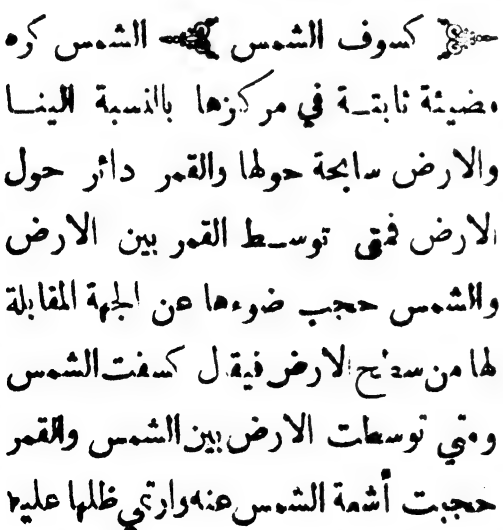 كسوف الشمس الشمس كره
مضيئة ثابتـة في مركزها بالنسبة الينـا
والارض سابحة حولها والقمر دائر حول
الارض فمتى توسـط القمر بين الارض
والشمس حجب ضوءها عن الجهة المقابلة
لها من سطح الارض فيقال كسفت الشمس
ومتى توسطت الارض بين الشمس والقمر
حجبت أشعة الشمس عنه وارتمي ظلها عليه